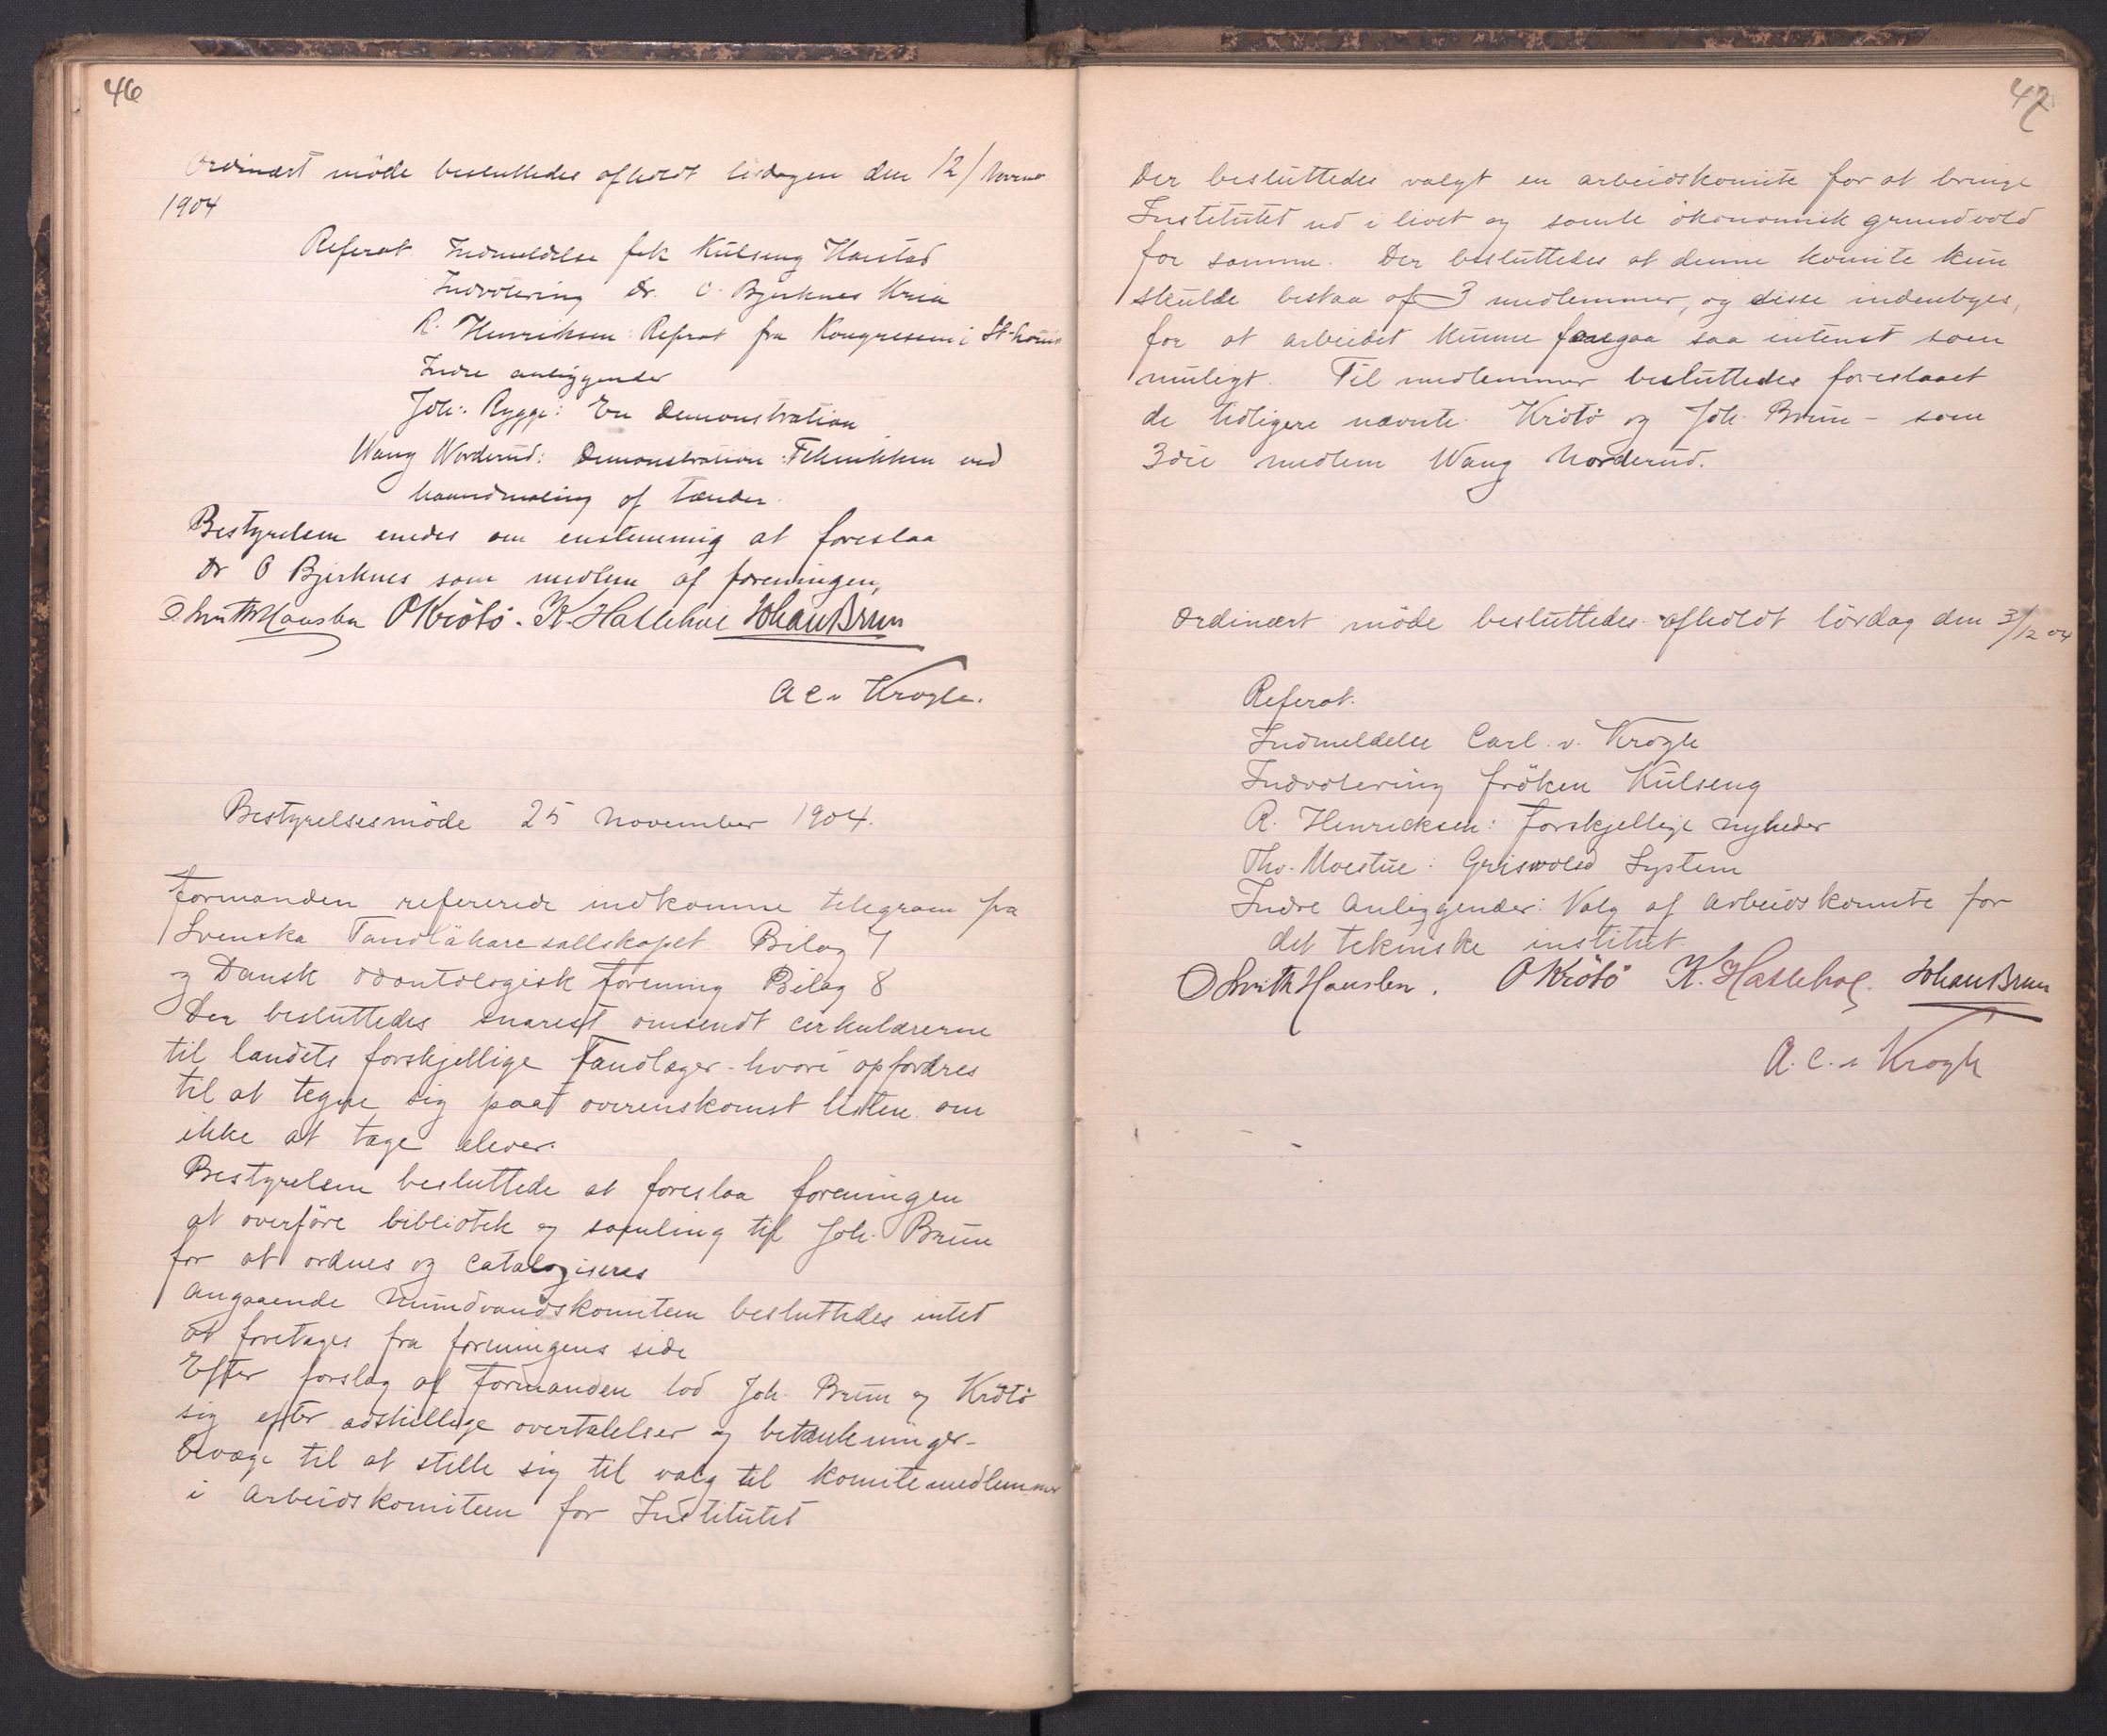 46
Ordinært möde besluttedes afholdt lördagen den 12/ Novmr
1904
Referat Indmeldelse frk Kulseng Harstad
Indvotering Dr. O. Bjerknes Kria
R. Henriksen: Referat fra Kongressen i St-Louis
Indre anliggender
Joh: Rygge: En Demonstration
Wang Norderud: Demonstration: Teknikken ved
haandmaling af tænder.
Bestyrelsen enedes om enstemmig at foreslaa
Dr O Bjerknes som medlem af foreningen,
O. Smith Housken O Krötö. K. Hasleboe Johan Brun
A C v Krogh.
Bestyrelsesmöde 25 November 1904.
Formanden refererede indkomne telegram fra
Svenska Tandläkaresallskapet Bilag 7
og Dansk odontologisk forening Bilag 8
Der besluttedes snarest omsendt cirkulærerne
til landets forskjellige Tandlæger - hvori opfordres
til at tegne sig paa overenskomst listen om
ikke at tage elever.
Bestyrelsen besluttede at foreslaa foreningen
at overföre bibliotek og samling til Joh. Brun
for at ordnes og catalogiseres
Angaaende mundvandskomiteen besluttedes intet
at foretages fra foreningens side
Efter forslag af Formanden lod Joh. Brun og Krötö
sig efter adskillige overtalelser og betænkninger -
bevæge til at stille sig til valg til komitemedlemmer
i Arbeidskomiteen for Institutet
47
Der besluttedes valgt en arbeidskomite for at bringe
Institutet ud i livet og samle ökonomisk grundvold
for samme. Der besluttedes at denne komite kun
skulde bestaa af 3 medlemmer, og disse indenbyes,
for at arbeidet kunne foregaa saa intenst som
muligt. Til medlemmer besluttedes foreslaaet
de tidligere nævnte Krötö og Joh. Brun - som
3die medlem Wang Norderud.
Ordinært möde besluttedes afholdt lördag den 3/12 04
Referat.
Indmeldelse Carl. v. Krogh
Indvotering fröken Kulseng
R. Henricksen: Forskjellige nyheder
Thv. Moestue: Griswold System
Indre Anliggender: Valg af Arbeidskomite for
det tekniske institut.
O Smith Housken. O Krötö K. Hasleboe. Johan Brun
A. C. v Krogh